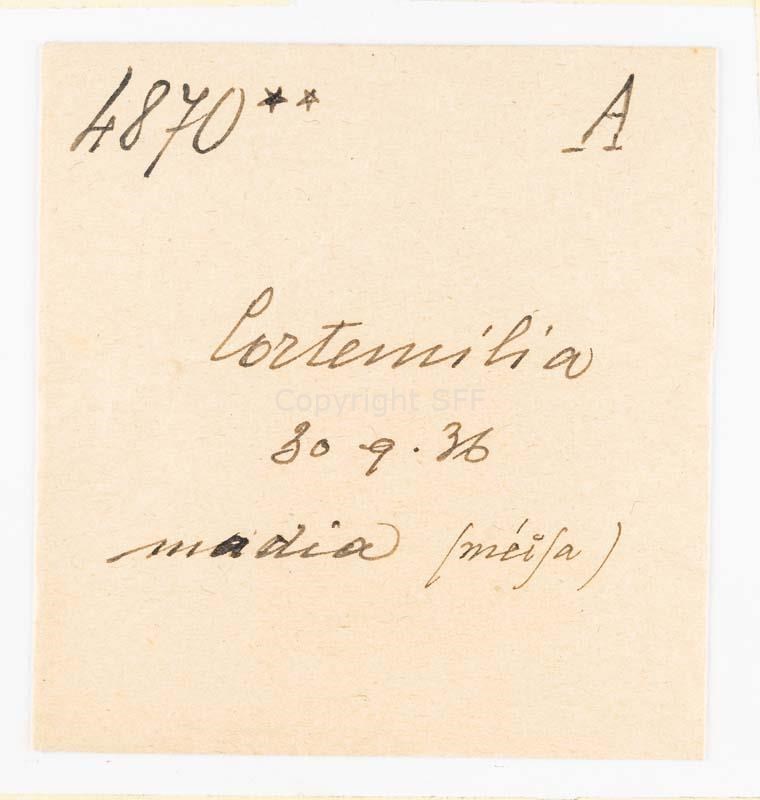 4870** A
Cortemilia
Copyright SFF
30 9. 36
madia (méiʃa)